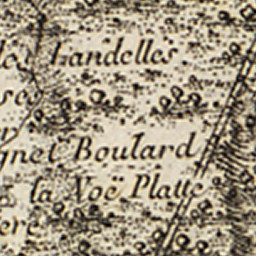 les Landelles
gnel Boulard
la Voë Platte
ere